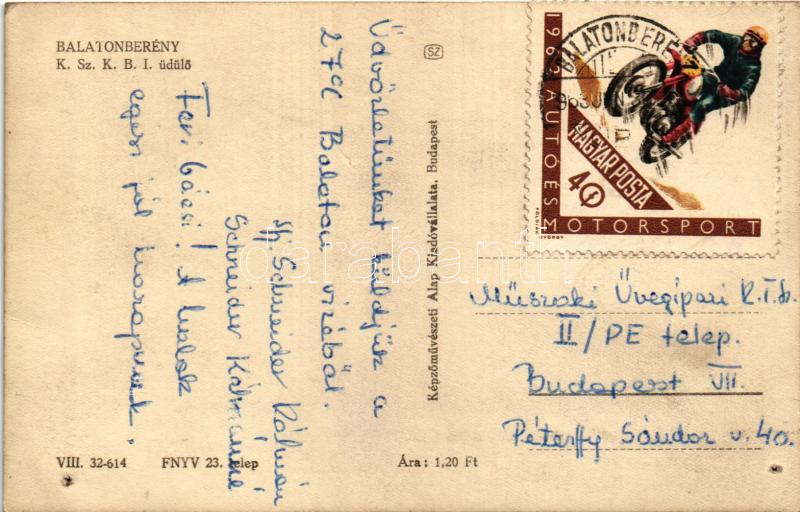 BALATONBERÉNY
K. Sz. K. B. I. üdülő
Üdvözletünket küldjük a
27°C Balaton vizéből.
Schneider Kálmán
Schneider Kálmánné
Feri bácsi! A halak
egész jól harapnak.
VIII. 32-614 FNYV 23. telep Ára: 1,20 Ft
Képzőművészeti Alap Kiadóvállalata, Budapest
SZ
BALATONBERÉNY
1963 AUTÓ ÉS MOTORSPORT
MAGYAR POSTA
40 f
Műszaki Üvegipari K.T.Sz.
II/PE telep.
Budapest VII.
Péterffy Sándor u. 40.
darabanth